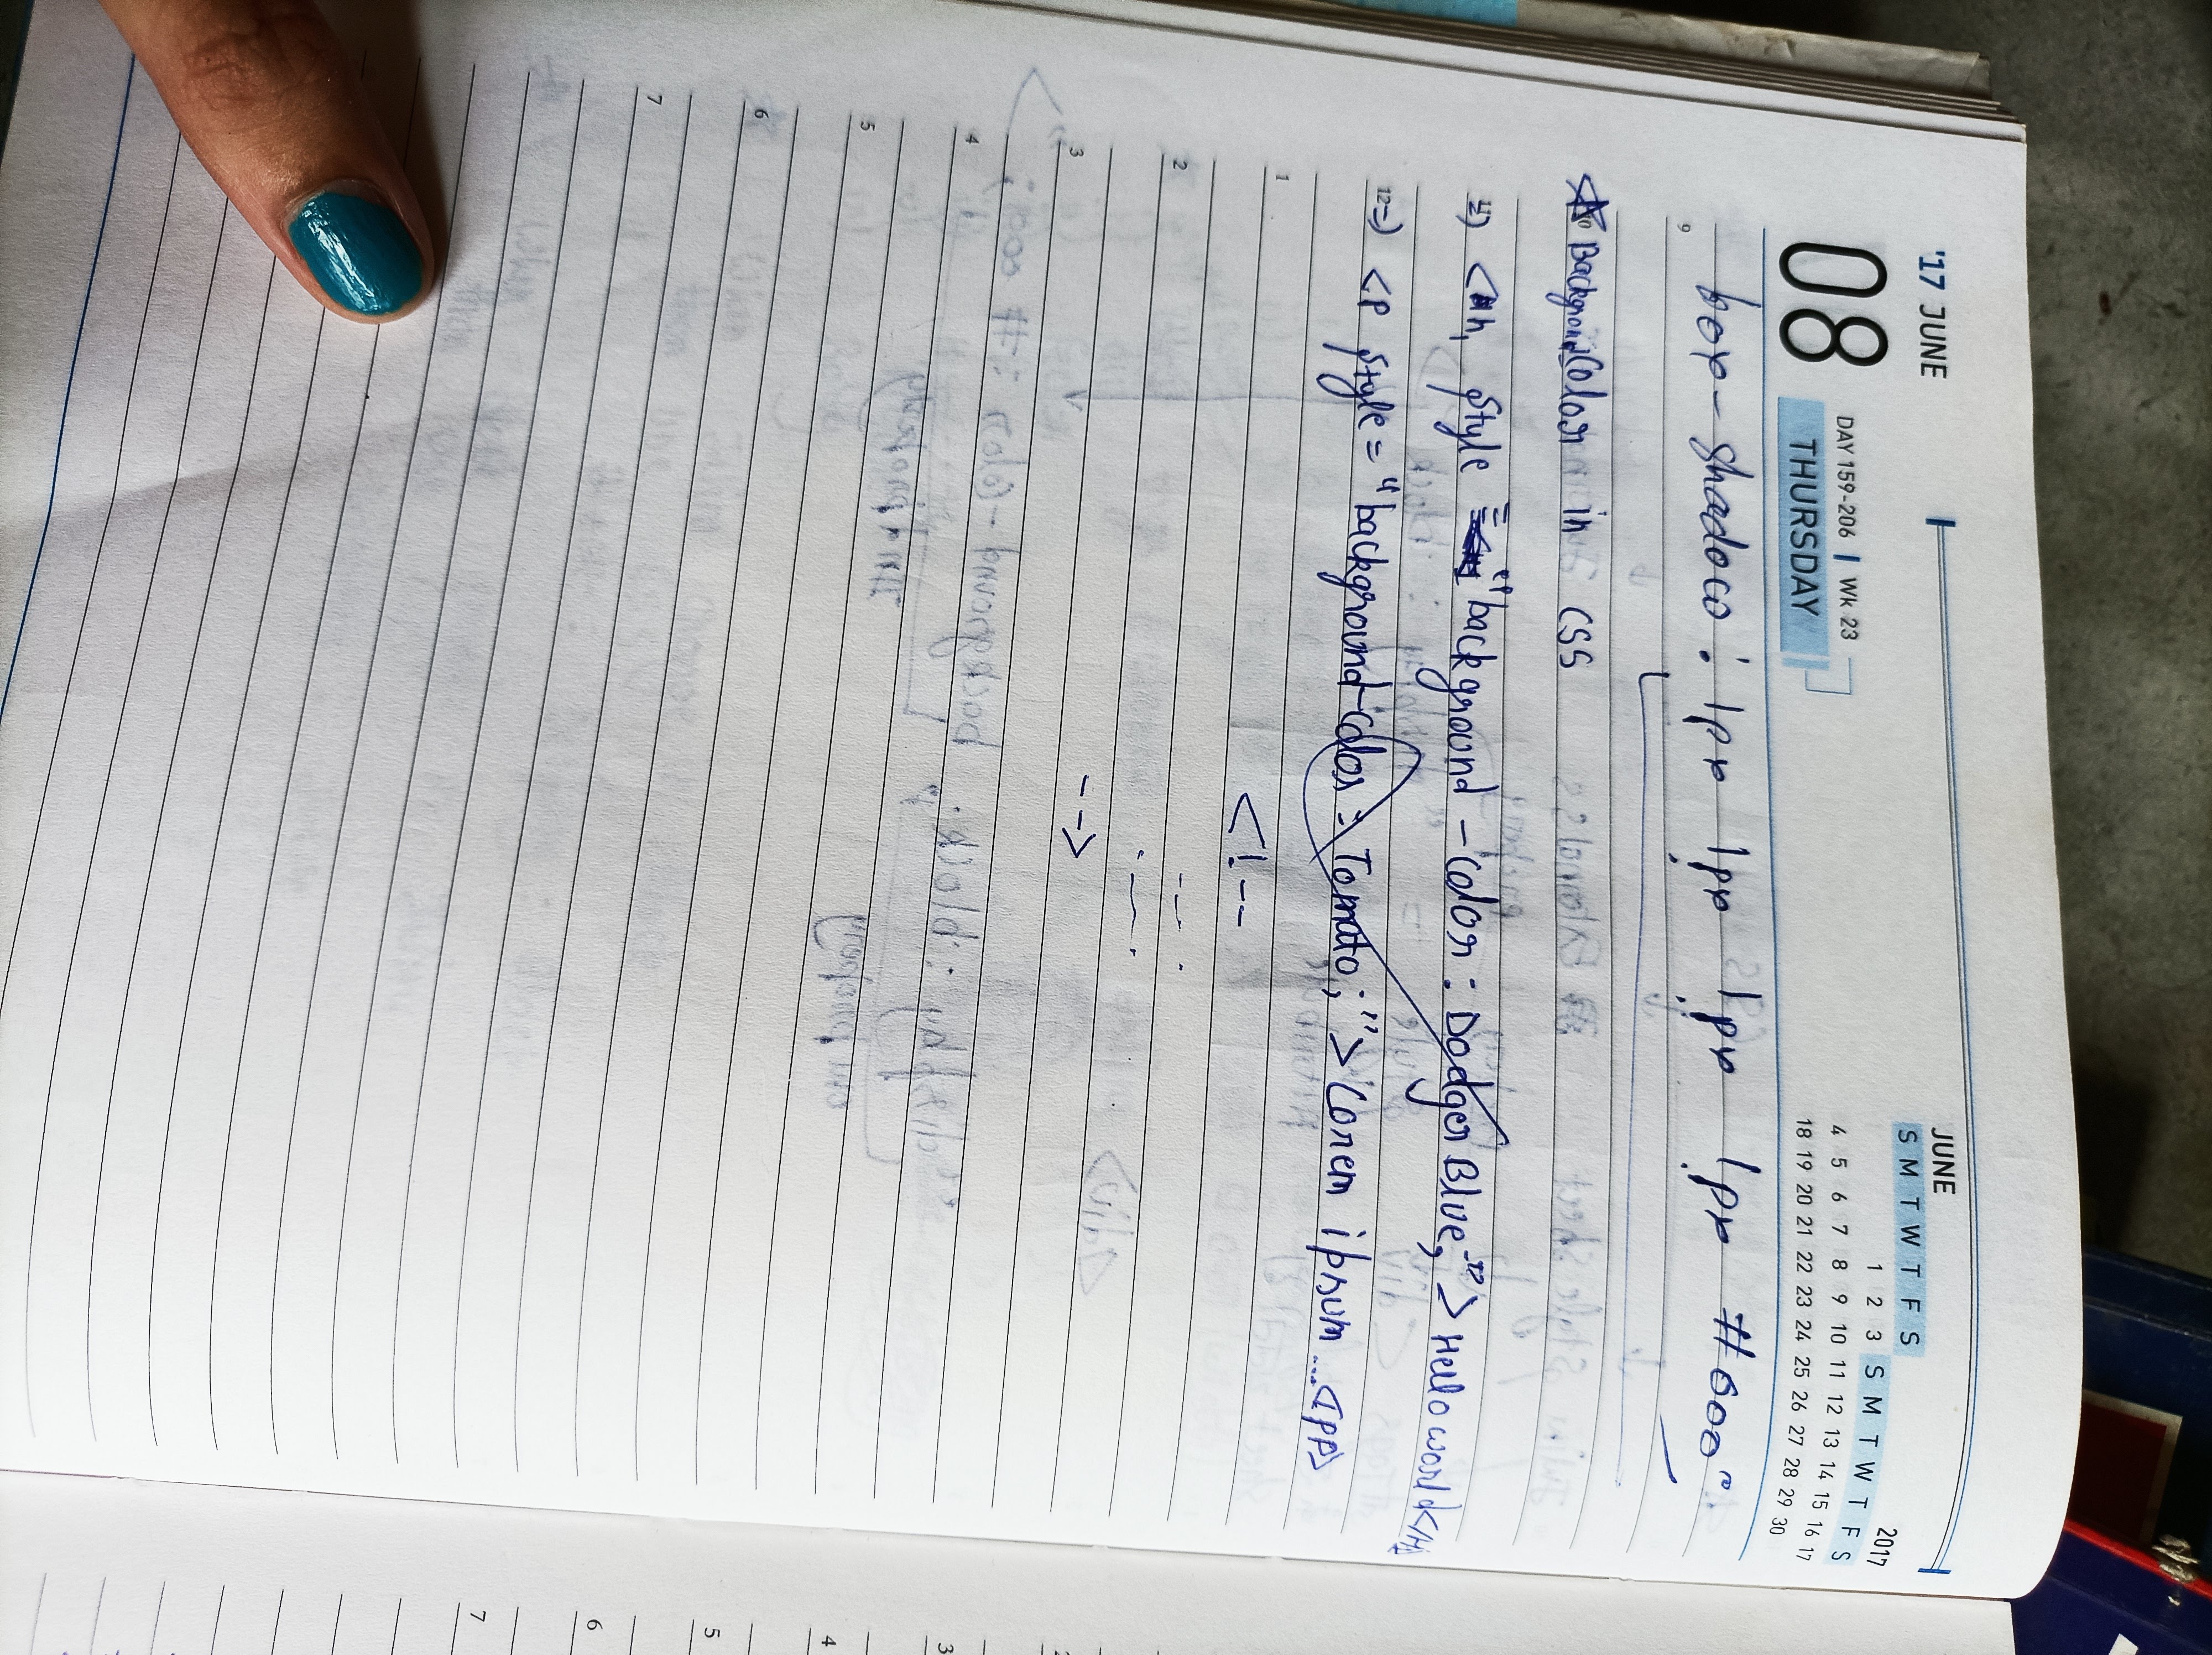 '17 JUNE
08
DAY 159-206 | WK 23
THURSDAY
JUNE 2017
S M T W T F S S M T W T F S
1 2 3
4 5 6 7 8 9 10 11 12 13 14 15 16 17
18 19 20 21 22 23 24 25 26 27 28 29 30
9 box-shadow : 1px 1px 1px 1px #000"
Background Color in CSS
<h1 style = "background-color : Dodger Blue;"> Hello world</h1>
12 => <p style = "background-color : Tomato;"> Lorem ipsum ....</p>
1 <!--
2
3 -->
4
5
6
7
7
6
5
4
3